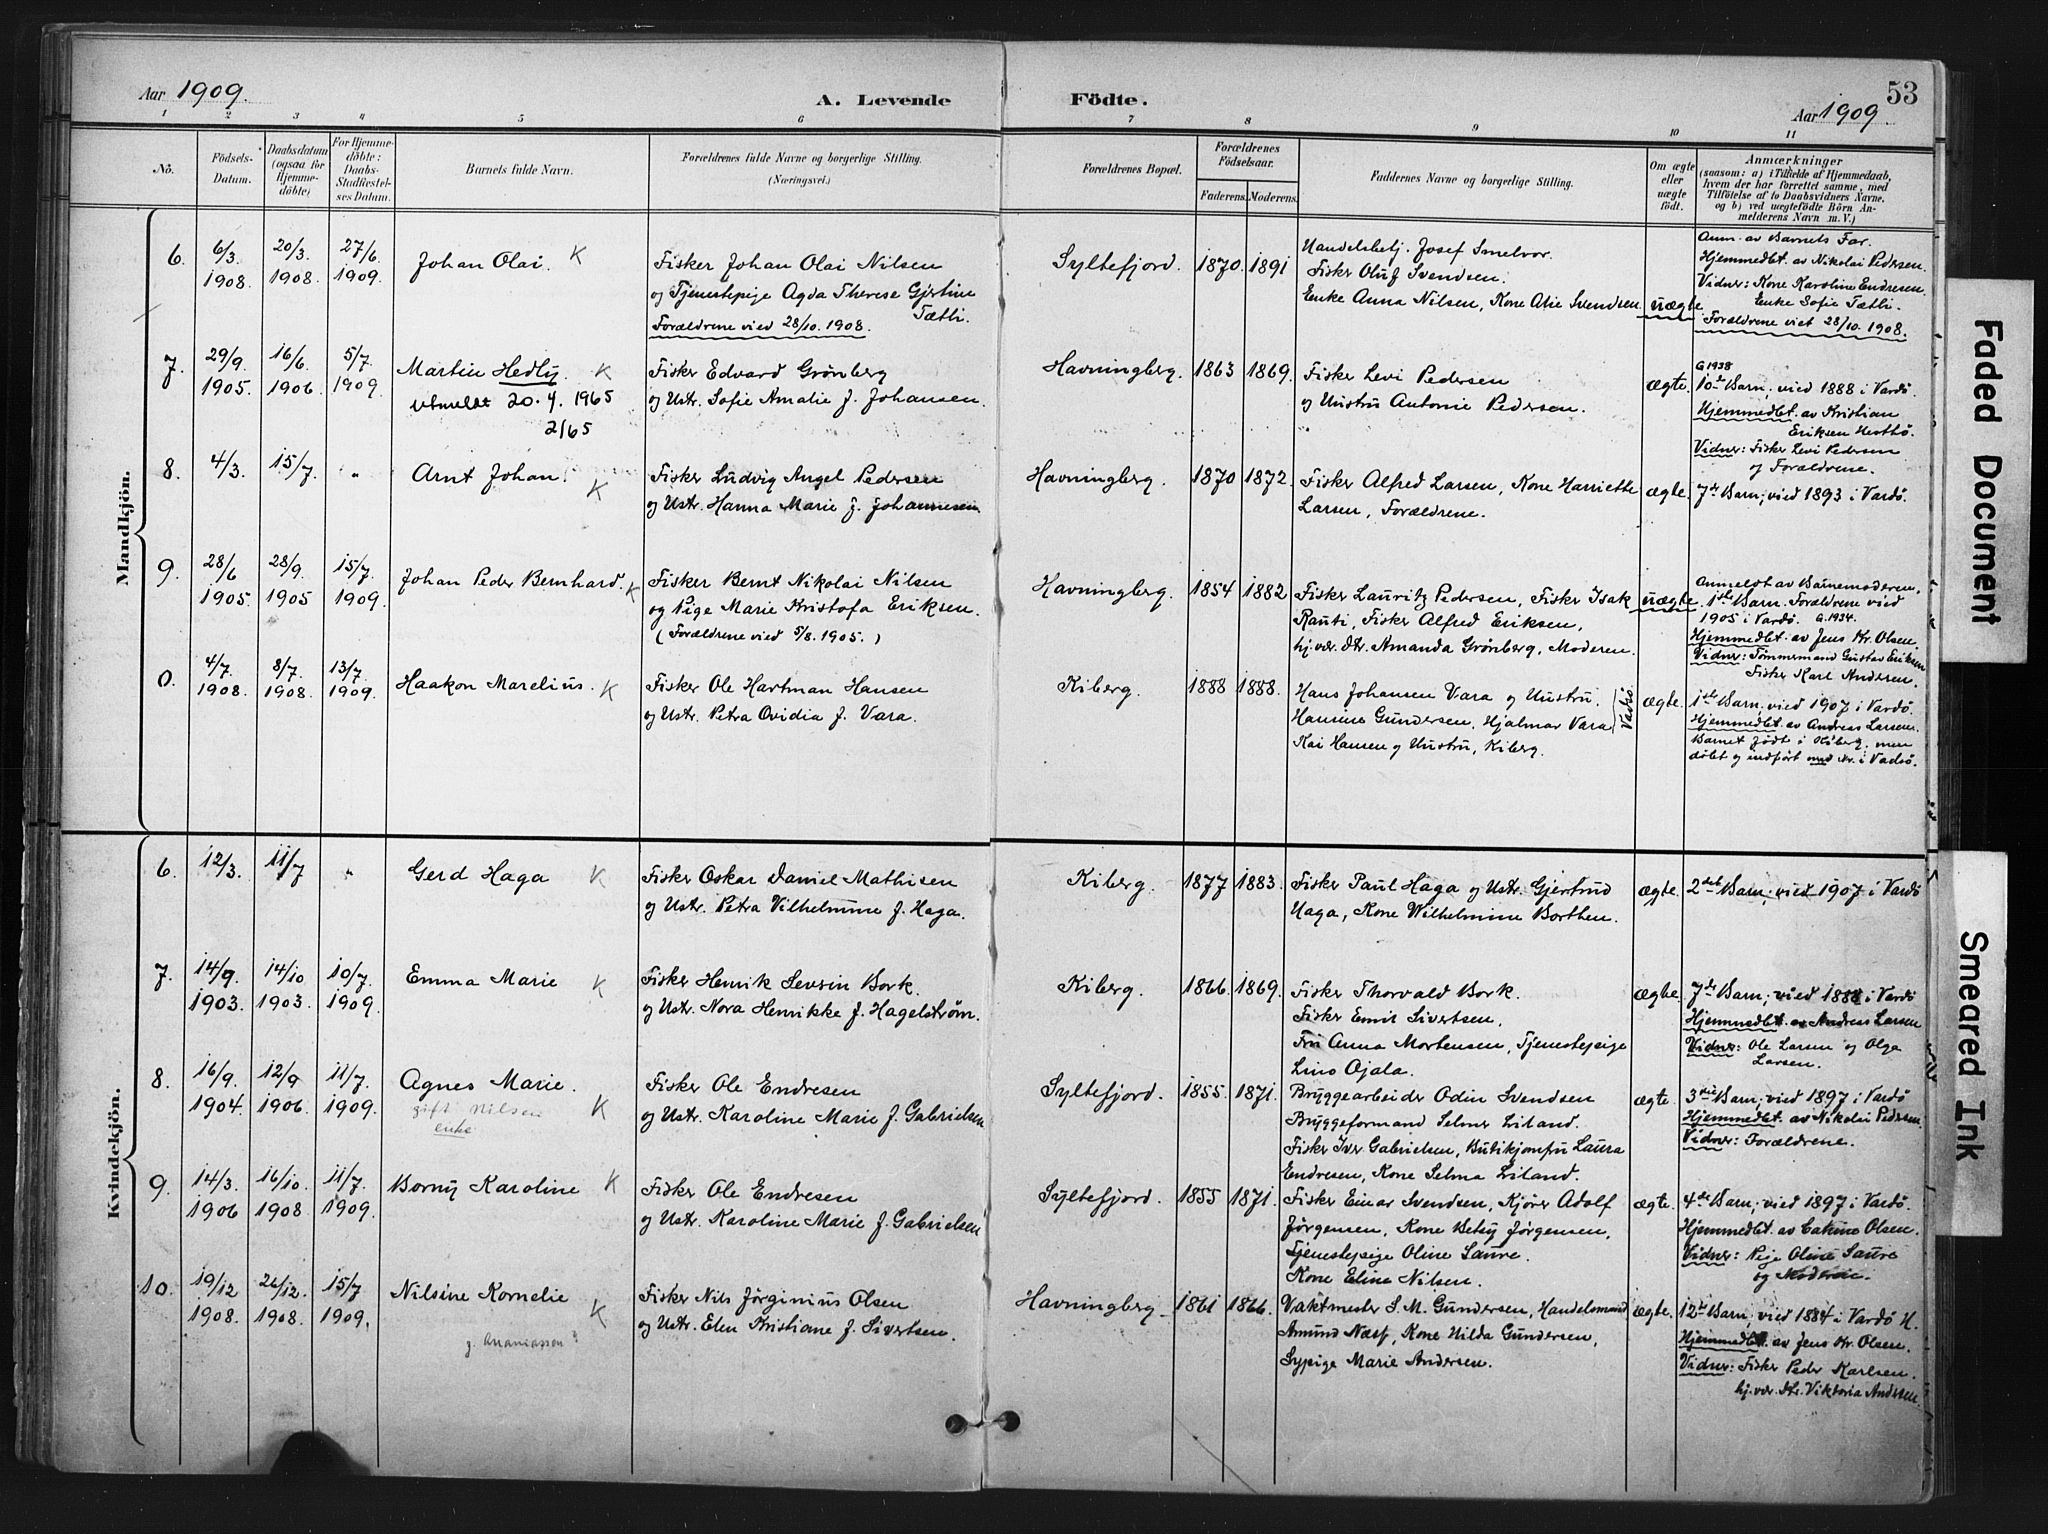 Aar 1909.
A. Levende
Födte.
53
Aar 1909.
1 2 3 4 5 6 7 8 9 10 11
No.
Födsels-
Datum.
Daabsdatum
(ogsaa for
Hjemme-
döbte)
For Hjemme-
döbte:
Daabs-
Stadfæstel-
ses Datum.
Barnets fulde Navn.
Forældrenes fulde Navne og borgerlige Stilling.
(Næringsvei.)
Forældrenes Bopæl.
Forældrenes
Födselsaar.
Faderens. Moderens.
Faddernes Navne og borgerlige Stilling.
Om ægte
eller
uægte
födt.
Anmærkninger
(saasom: a) i Tilfælde af Hjemmedaab,
hvem der har forrettet samme, med
Tilföielse af to Daabsvidners Navne.
og b) ved uægtefödte Börn An-
melderens Navn m. V.)
Mandkjön.
6. 6/3 1908. 20/3. 1908. 27/6. 1909.
Johan Olai. K
Fisker Johan Olai Nilsen
og Tjenestepige Agda Therese Gjertine
Tætli.
Forældrene viet 28/10. 1908.
Syltefjord. 1870. 1891
Handelsbetj. Josef Smelvor.
Fisker Oluf Svendsen.
Enke Anna Nilsen, Kone Alie Svendsen
uægte
Anm. av Barnets Far.
Hjemmedbt. av Nikolai Pedersen.
Vidner: Kone Karoline Endresen.
Enke Sofie Tætli.
Forældrene viet 28/10. 1908.
7. 29/9. 1905. 16/6. 1906. 5/7. 1909.
Martin Hedly. K
utmeldt 20.4.1965
2/65
Fisker Edvard Grønberg
og Ustr. Sofie Amalie f. Johansen.
Havningberg. 1863 1869.
Fisker Levi Pedersen
og Hustru Antonie Pedersen.
ægte.
G 1938
10de Barn; vied 1888 i Vardö.
Hjemmedbt. av Kristian
Eriksen Hesthö.
Vidner: Fisker Levi Pedersen
og Forældrene.
8. 4/3. 15/7. "
Arnt Johan. K
Fisker Ludvig Angel Pedersen
og Ustr. Hanna Marie f. Johannesen
Havningberg. 1870 1872.
Fisker Alfred Larsen, Kone Harriette
Larsen, Forældrene.
ægte. 7de Barn; vied 1893 i Vardö.
9. 28/6 1905. 28/9. 1905 15/7. 1909.
Johan Peder Bernhard. K
Fisker Bernt Nikolai Nilsen
og Pige Marie Kristofa Eriksen.
(Forældrene vied 5/8. 1905.)
Havningberg. 1854 1882
Fisker Lauritz Pedersen, Fisker Isak
Rauti, Fisker Alfred Eriksen,
hj. vær. dtr. Amanda Grønberg, Moderen.
uægte.
Anmeldt av Barnemoderen,
1ste Barn. Forældrene vied
1905 i Vardö. G. 1934.
Hjemmedbt. av Jens Kr. Olsen.
Vidner: Tømmermand Gustav Eriksen
Fisker Karl Andersen.
0. 4/7. 1908. 8/7. 1908. 13/7. 1909.
Haakon Marelius. K
Fisker Ole Hartman Hansen
og Ustr. Petra Ovidia f. Vara.
Kiberg. 1888 1888.
Hans Johansen Vara og Hustru.
Hansine Gundersen, Hjalmar Vara
Vadsö
Kai Hansen og Hustru, Kiberg.
ægte.
1ste Barn; vied 1907 i Vardö.
Hjemmedbt. av Andreas Larsen.
Barnet födt i Kiberg, men
döbt og indført med Nr. i Vadsö.
Kvindekjön.
6. 12/3. 11/7 "
Gerd Haga K
Fisker Oskar Daniel Mathisen
og Ustr. Petra Vilhelmine f. Haga.
Kiberg. 1877 1883.
Fisker Paul Haga og Ustr. Gjertrud
Haga, Kone Wilhelmine Borthen.
ægte. 2det Barn; vied 1907 i Vardö
7. 14/9. 1903. 14/10 1903. 10/7. 1909.
Emma Marie K
Fisker Henrik Severin Bork.
og Ustr. Nora Henrikke f. Hagelström.
Kiberg. 1866. 1869.
Fisker Thorvald Bork.
Fisker Emil Sivertsen.
Fru Anna Mortensen, Tjenestepige
Lino Ojala.
ægte.
7de Barn; vied 1888 i Vardö
Hjemmedbt. av Andreas Larsen
Vidner: Ole Larsen og Olga
Larsen.
8. 16/9. 1904. 12/9 1906. 11/7. 1909.
Agnes Marie.
gift Nilsen
enke
K
Fisker Ole Endresen
og Ustr. Karoline Marie f. Gabrielsen
Syltefjord. 1855. 1871.
Bryggearbeider Odin Svendsen
Bryggeformand Selmer Liland.
Fisker Iver Gabrielsen, Butikjomfru Laura
Endresen, Kone Selma Liland.
ægte
3die Barn; vied 1897 i Vardö
Hjemmedbt. av Nikolai Pedersen.
Vidner: Forældrene.
9. 14/3. 1906 16/10. 1908 11/7. 1909.
Borny Karoline K
Fisker Ole Endresen
og Ustr. Karoline Marie f. Gabrielsen
Syltefjord. 1855 1871.
Fisker Einar Svendsen, Kjörer Adolf
Jørgensen, Kone Betsy Jørgensen,
Tjenestepige Oline Saure.
Kone Eline Nilsen.
ægte.
4de Barn; vied 1897 i Vardö.
Hjemmedbt. av Catrine Olsen.
Vidner: Pige Oline Saure
og Moderen.
10. 19/12 1908. 26/12. 1908. 15/7 1909.
Nilsine Kornelie K
g. Ananiasson
Fisker Nils Jørginius Olsen
og Ustr. Elen Kristiane f. Sivertsen.
Havningberg. 1861 1866.
Vaktmester S. M. Gundersen, Handelsmand
Amund Næss, Kone Hilda Gundersen,
Sypige Marie Andersen.
ægte.
12te Barn, vied 1884 i Vardö H.
Hjemmedbt. av Jens Kr. Olsen.
Vidner: Fisker Peder Karlsen.
hj. vær. dtr. Viktoria Andersen.
Faded Document
Smeared Ink